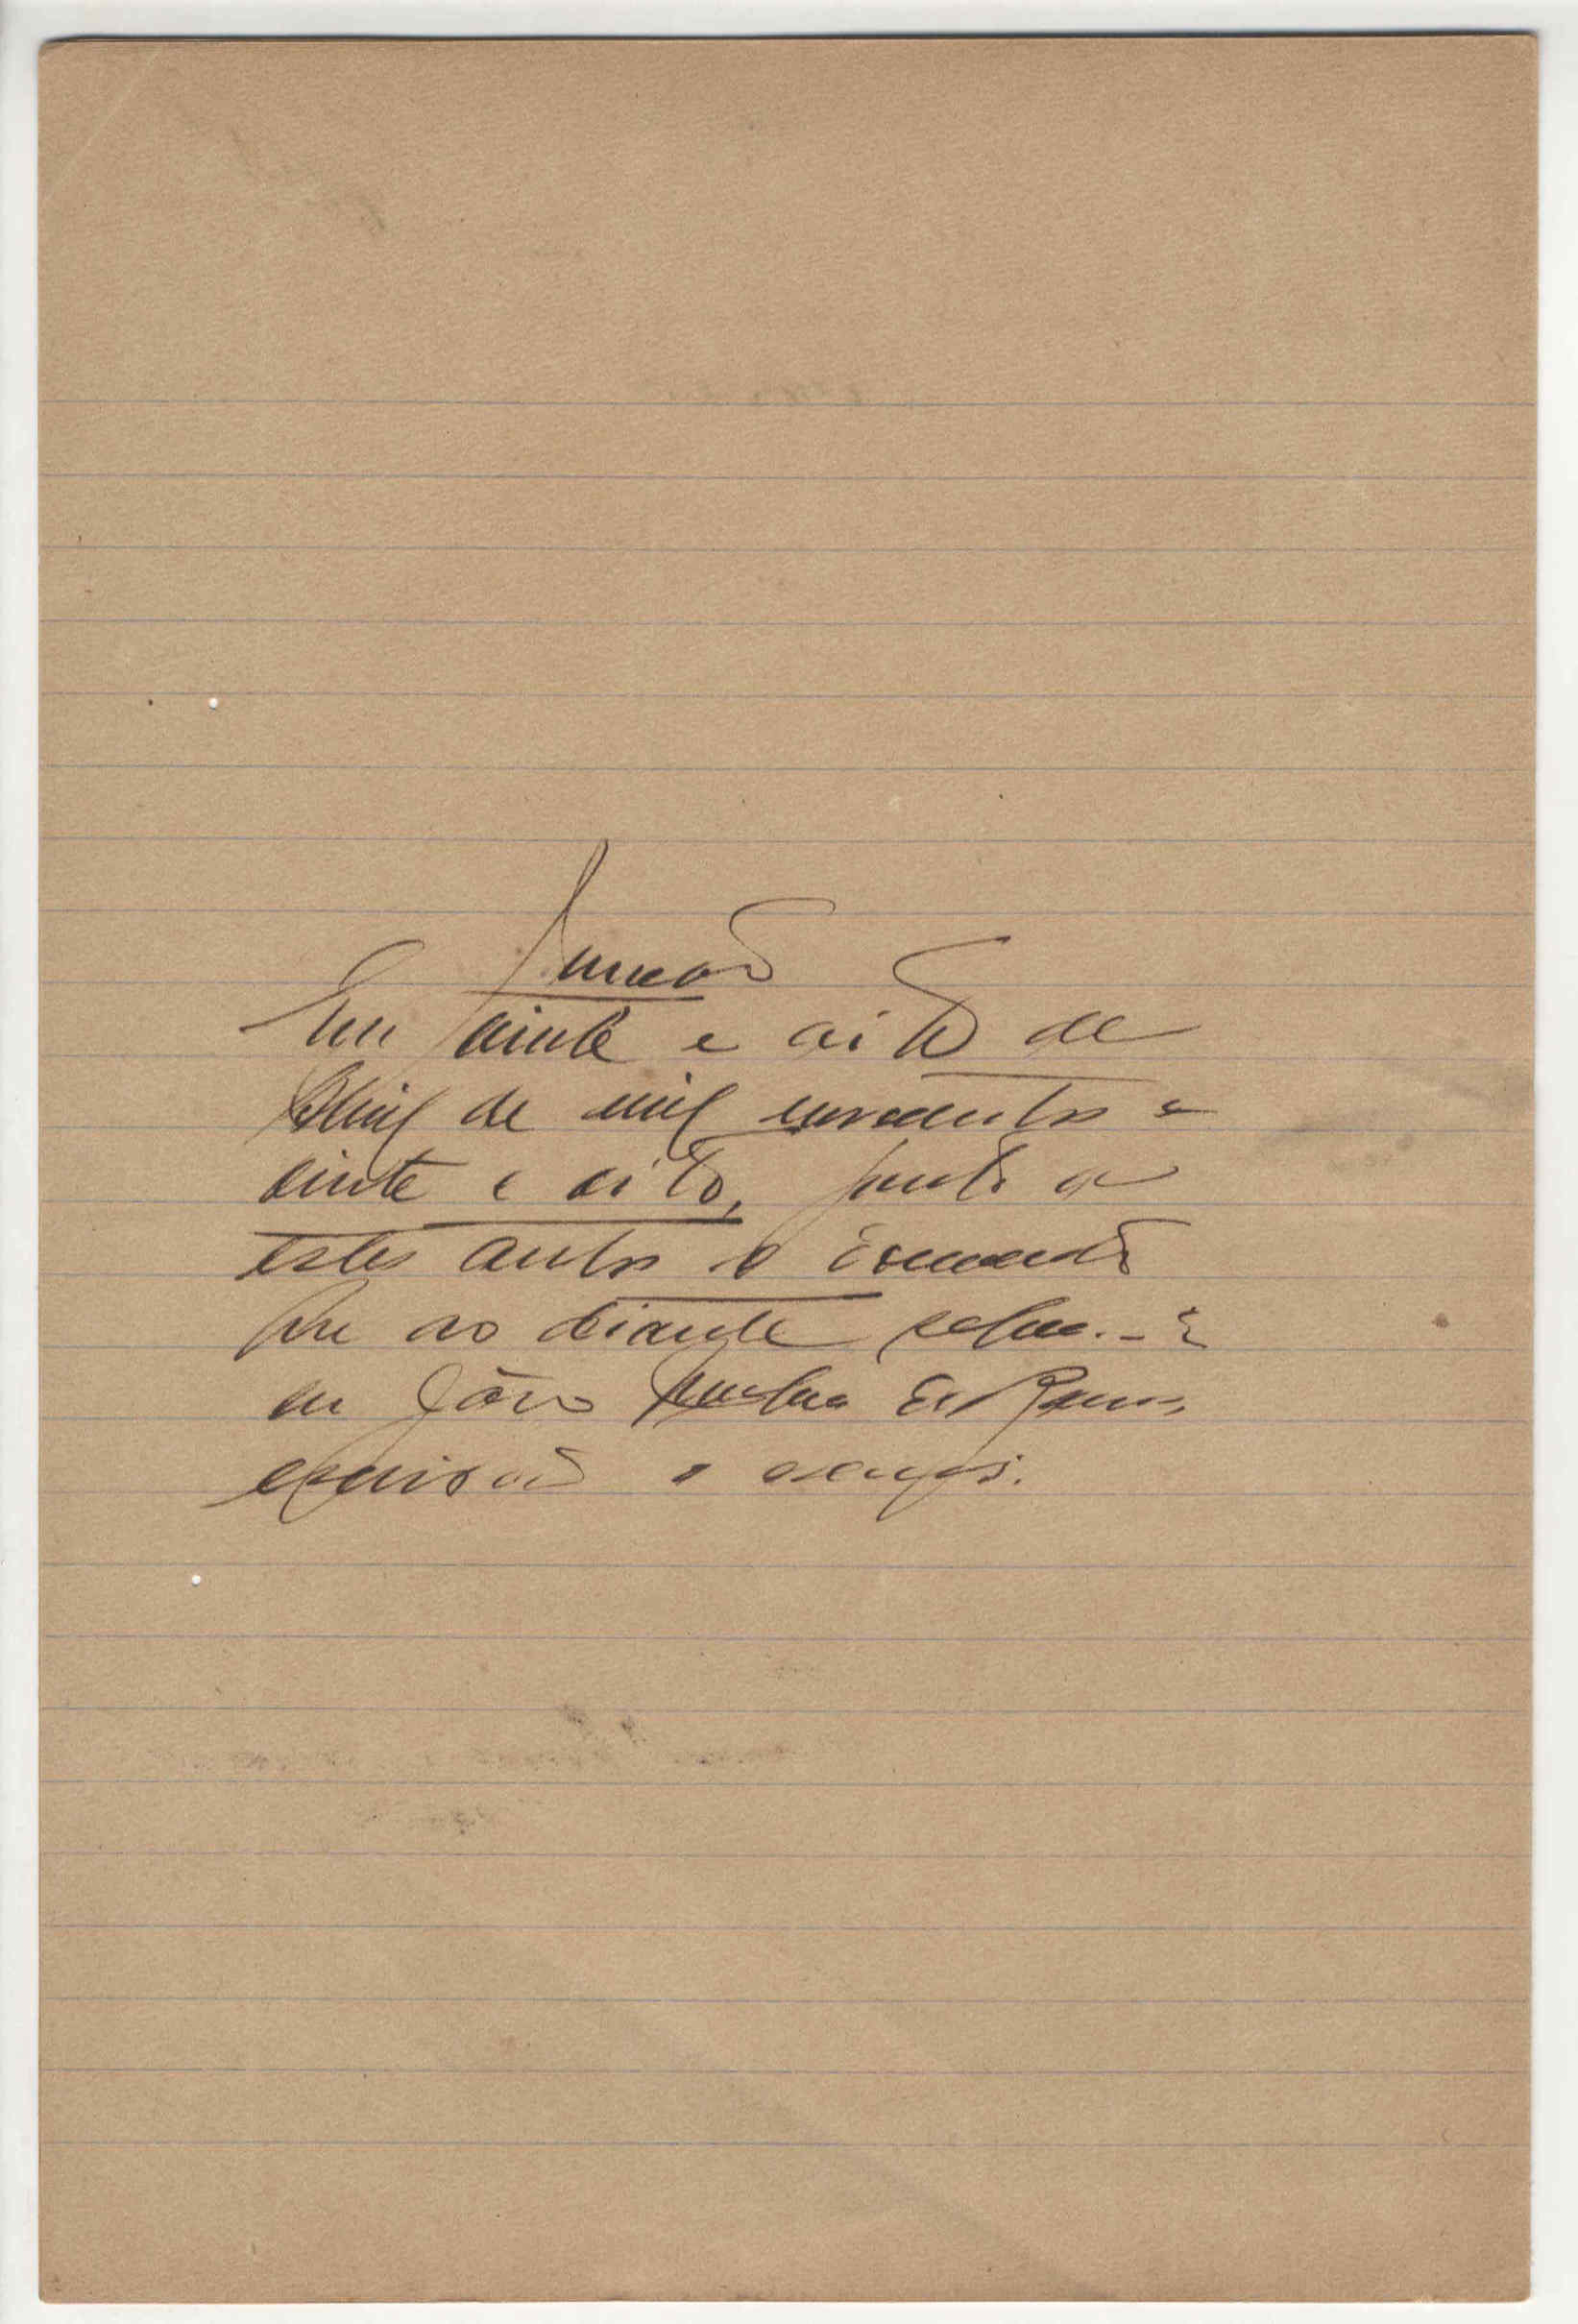 Juntada
Em vinte e oito de
Abril de mil novecentos e
vinte e oito, junto a
estes autos o
que ao diante se . - E
eu João da
escrivão o escrevi.